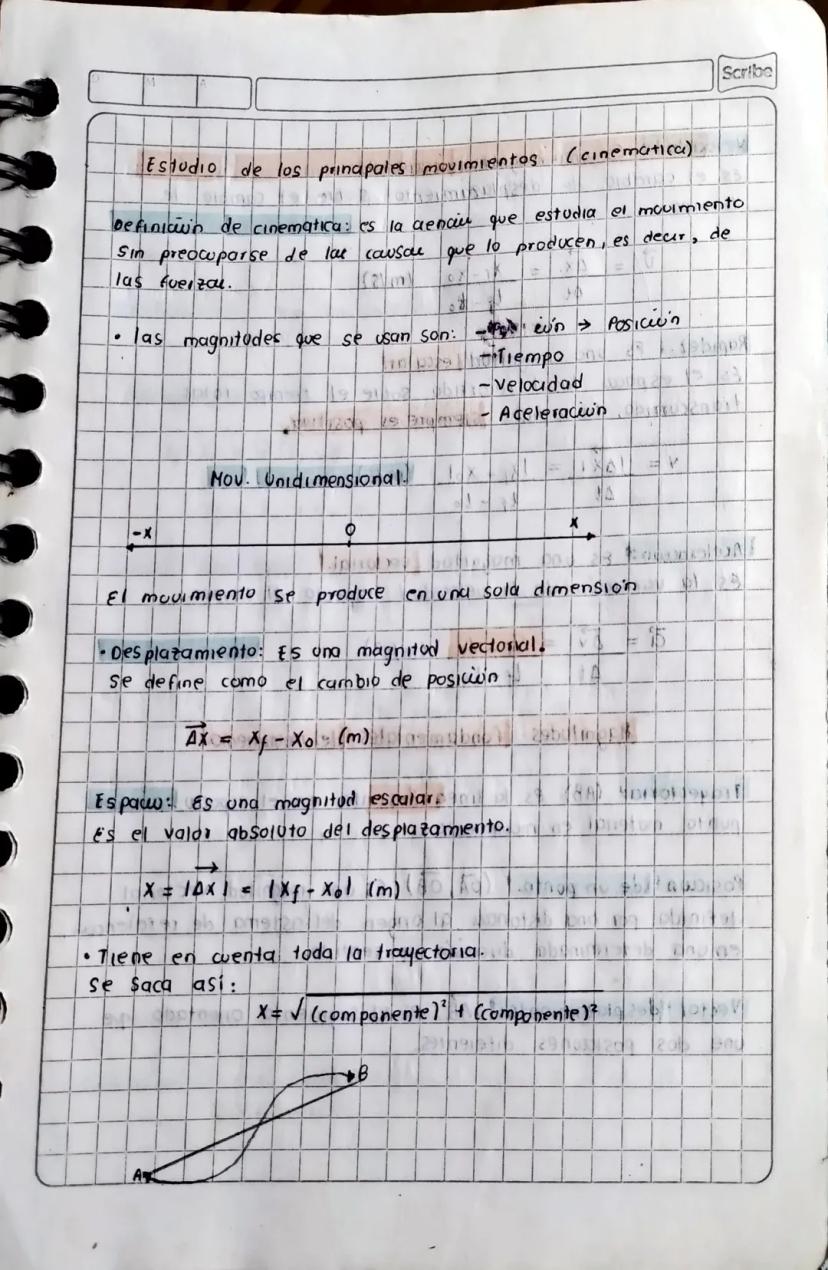 Scribe
D M A
Estudio de los principales movimientos (cinematica)
Definición de cinematica: es la ciencia que estudia el movimiento
sin preocuparse de las causas que lo producen, es decir, de
las fuerzas.
• las magnitudes que se usan son: - ión → Posición
- Tiempo
- Velocidad
- Aceleración
Mov. Unidimensional
-x 0 x
El movimiento se produce en una sola dimensión
• Desplazamiento: Es una magnitud vectorial.
se define como el cambio de posición
Δx⃗ = xf - x0 (m)
Espacio: Es una magnitud escalar.
Es el valor absoluto del desplazamiento.
X = |Δx⃗| = |xf - x0| (m)
• Tiene en cuenta toda la trayectoria.
se saca así:
X = √(componente)² + (componente)²
B
A